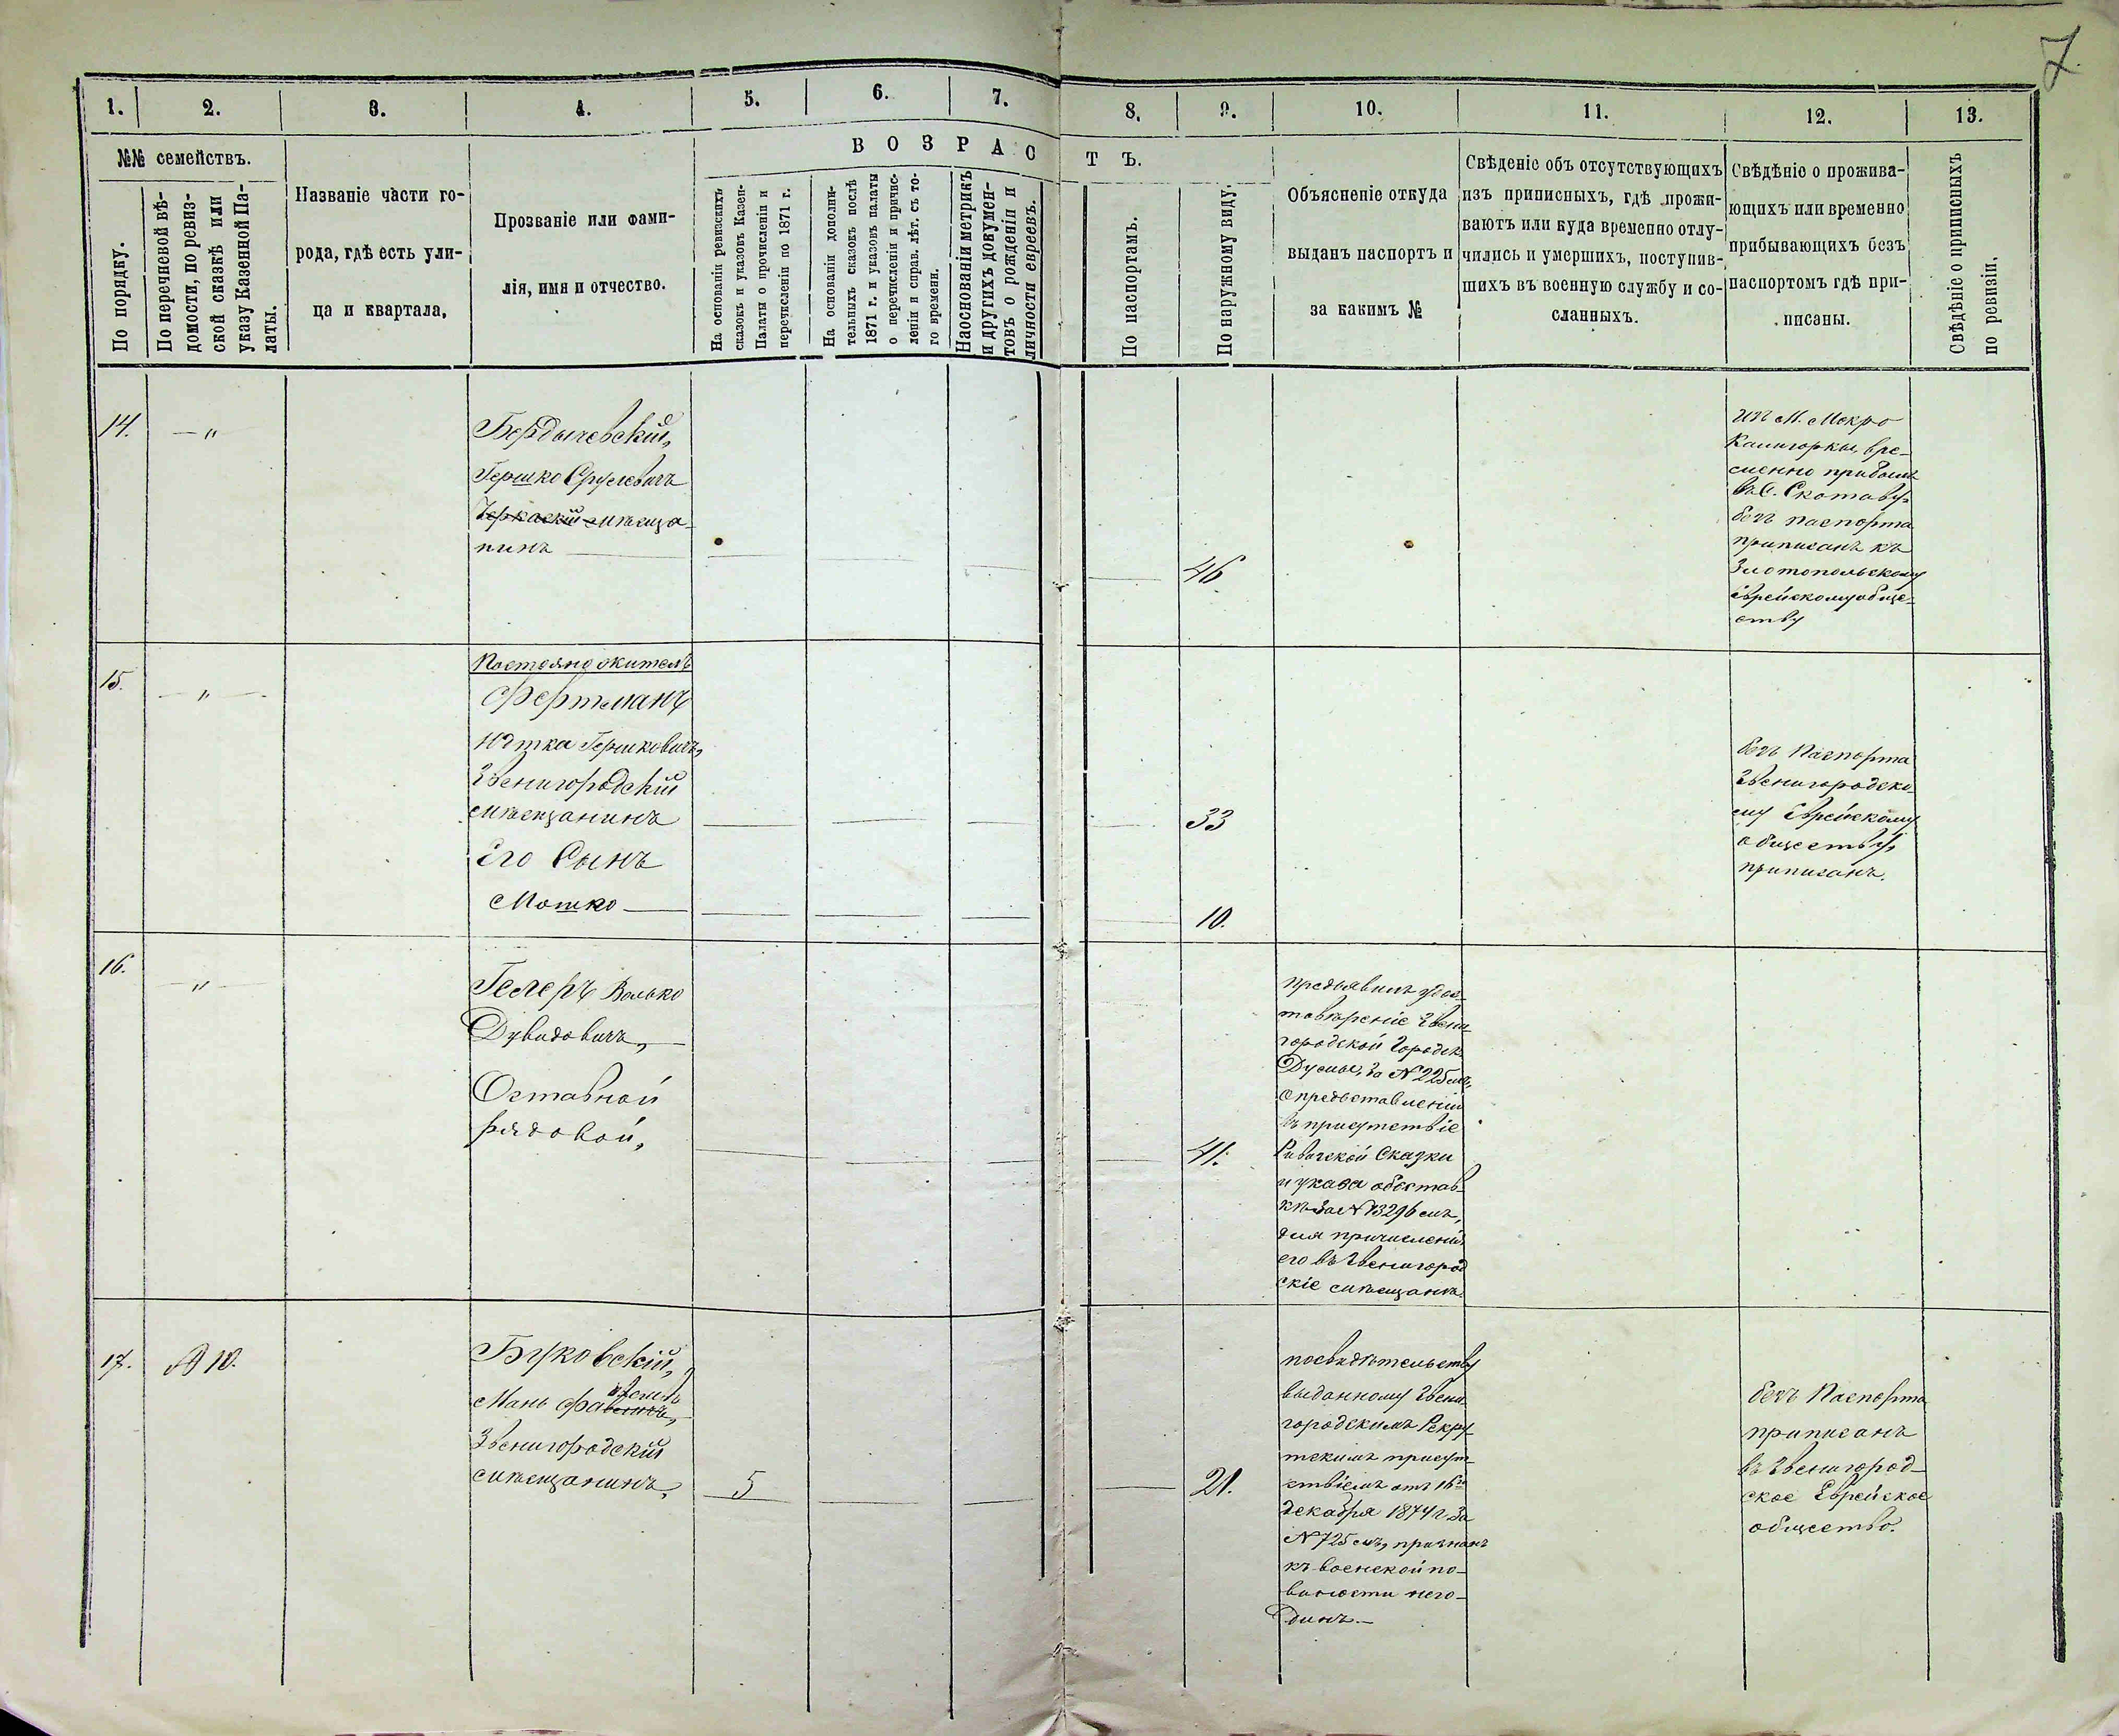 7.
1.
2.
3.
4.
5.
6.
7.
8.
9.
10.
11.
12.
13.
№№ семействъ.
По порядку.
По перечневой вѣ-
домости, по ревиз-
ской сказкѣ или
указу Казенной Па-
латы.
Названіе части го-
рода, гдѣ есть ули-
ца и квартала,
Прозваніе или фами-
лія, имя и отчество.
ВОЗРАСТЪ.
На основаніи ревизскихъ
сказокъ и указовъ Казен-
Палаты о прочисленіи и
перечисленіи по 1871 г.
На основаніи дополни-
тельныхъ сказокъ послѣ
1871 г. и указовъ палаты
о перечисленіи и причис-
леніи и справ. лѣт. съ то-
го времени.
На основаніи метрикъ
и другихъ докумен-
товъ о рожденіи и
личности евреевъ.
По паспортамъ.
По наружному виду,
Объясненіе откуда
выданъ паспортъ и
за какимъ №
Свѣденіе объ отсутствующихъ
изъ приписныхъ, гдѣ прожи-
ваютъ или куда временно отлу-
чились и умершихъ, поступив-
шихъ въ военную службу и со-
сланныхъ.
Свѣдѣніе о прожива-
ющихъ или временно
прибывающихъ безъ
паспортомъ гдѣ при-
писаны.
Свѣдѣніе о приписныхъ
по ревизіи,
14.
— "
Бердычевскій,
Гершко Срулевичъ
Черкаскій мѣща-
нинъ
46
изъ М. Мокро
Калигоркы, вре-
менно прибылъ
въ С. Скотаву,
безъ паспорта
приписанъ къ
Злотопольскому
Еврейскому обще-
ству
15.
— " —
Постояно житель
Фертманъ
Ютка Гершковичъ,
Звенигородскій
мѣщанинъ
33
Его Сынъ
Мошко
10.
безъ Паспорта
Звенигородско-
му Еврейскому
обществу,
приписанъ.
16.
— " —
Гелеръ Волько
Дувидовичъ,
Оставной
рядовой,
41.
предъявилъ удос-
товѣреніе Звени-
городской Городск.
Думы, за № 225мъ,
о предъставленіи
въ присутствіе
Ривизской Сказки
и указа объ отстав-
кѣ за № 13296мъ,
для причисленія
его въ Звенигород
скіе мѣщанѣ.
17.
№ 10.
Буковскій,
Мань
Звенигородскій
мѣщанинъ,
5
21.
посвидѣтельству
выданному Звени-
городскимъ Рекру-
тскимъ присут-
ствіемъ отъ 16го
декабря 1874 г. За
№ 725мъ, признанъ
къ военской по-
виности него-
динъ. —
безъ Паспорта
приписанъ
въ Звенигород-
ское Еврейское
общество.